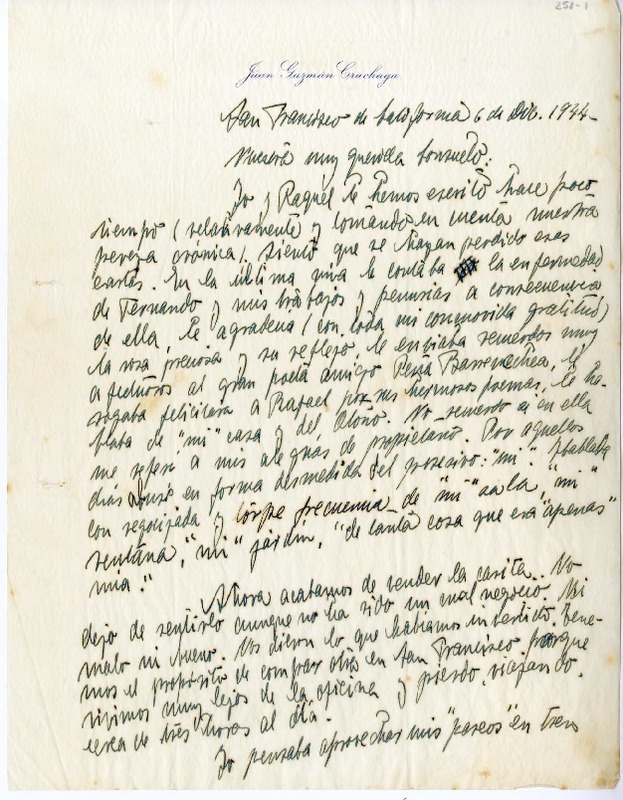 250-1
Juan Guzmán Cruchaga
San Francisco de California 6 de Dic. 1944-
Nuestra muy querida Consuelo:
Yo y Raquel le hemos escrito hace poco
tiempo (relativamente y tomando en cuenta nuestra
pereza crónica). Siento que se hayan perdido esas
cartas. En la última mía le contaba la enfermedad
de Fernando y mis trabajos y penurias a consecuencia
de ella, le agradecía (con toda mi conmovida gratitud)
la rosa preciosa y su reflejo, le enviaba recuerdos muy
afectuosos al gran poeta amigo Peña Barrenechea, le
rogaba felicitara a Rafael por sus hermosos poemas, le ha-
blaba de "mi" casa y del Otoño. No recuerdo si en ella
me referí a mis alegrías de propietario. Por aquellos
días abusé en forma desmedida del posesivo: "mi". Hablaba
con regocijada y torpe frecuencia de "mi" sala, "mi"
ventana, "mi" jardín, "de tanta cosa que era "apenas"
mía".
Ahora acabamos de vender la casita. No
dejo de sentirlo aunque no ha sido un mal negocio. Ni
malo ni bueno. Nos dieron lo que habíamos invertido. Tene-
mos el propósito de comprar otra en San Francisco porque
vivimos muy lejos de la oficina y pierdo, viajando,
cerca de tres horas al día.
Yo pensaba aprovechar mis "paseos" en tren